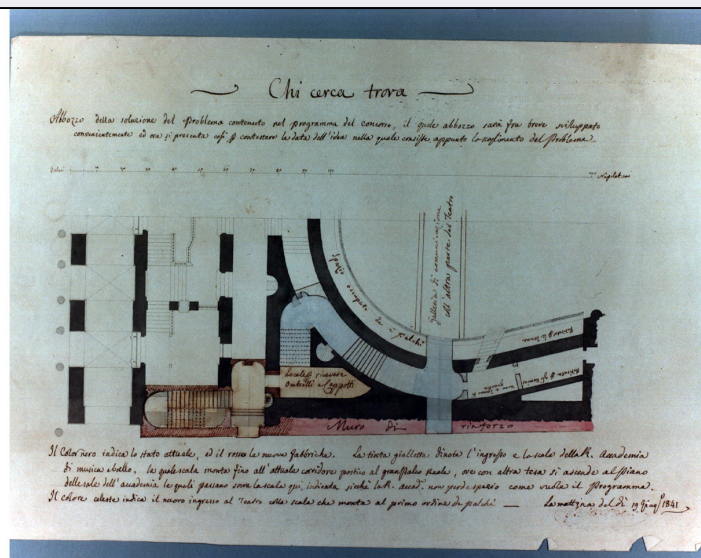 Chi cerca trova
Abbozzo della soluzione del Problema contenuto nel programma del concorso, il quale abbozzo sarà fra breve sviluppato
convenientemente ed ora si presenta così p contestare la data dell'idea nella quale consiste appunto lo scoglimento del Problema.
Palchi
Galleria di comunicazione
coll'altra parte del Teatro
Spazio occupato da i Palchi
Locale p riavere
Ombrelli e Cappotti
Muro di rinforzo
Il Color nero indica lo stato attuale, ed il rosso le nuove fabbriche. La tinta gialletta dinota l'ingresso e la scala della R. Accademia
di musica e ballo, la quale scala monta fino all'attuale corridore portico al gran palco reale, ove con altra tesa si ascende al piano
delle sale dell'accademia le quali passano sovra la scala qui indicata sicchè la R. Accad. non perde spazio come vuole il programma.
Il colore celeste indica il nuovo ingresso al Teatro colla scala che monta al primo ordine di palchi — La mattina del dì 19 1841